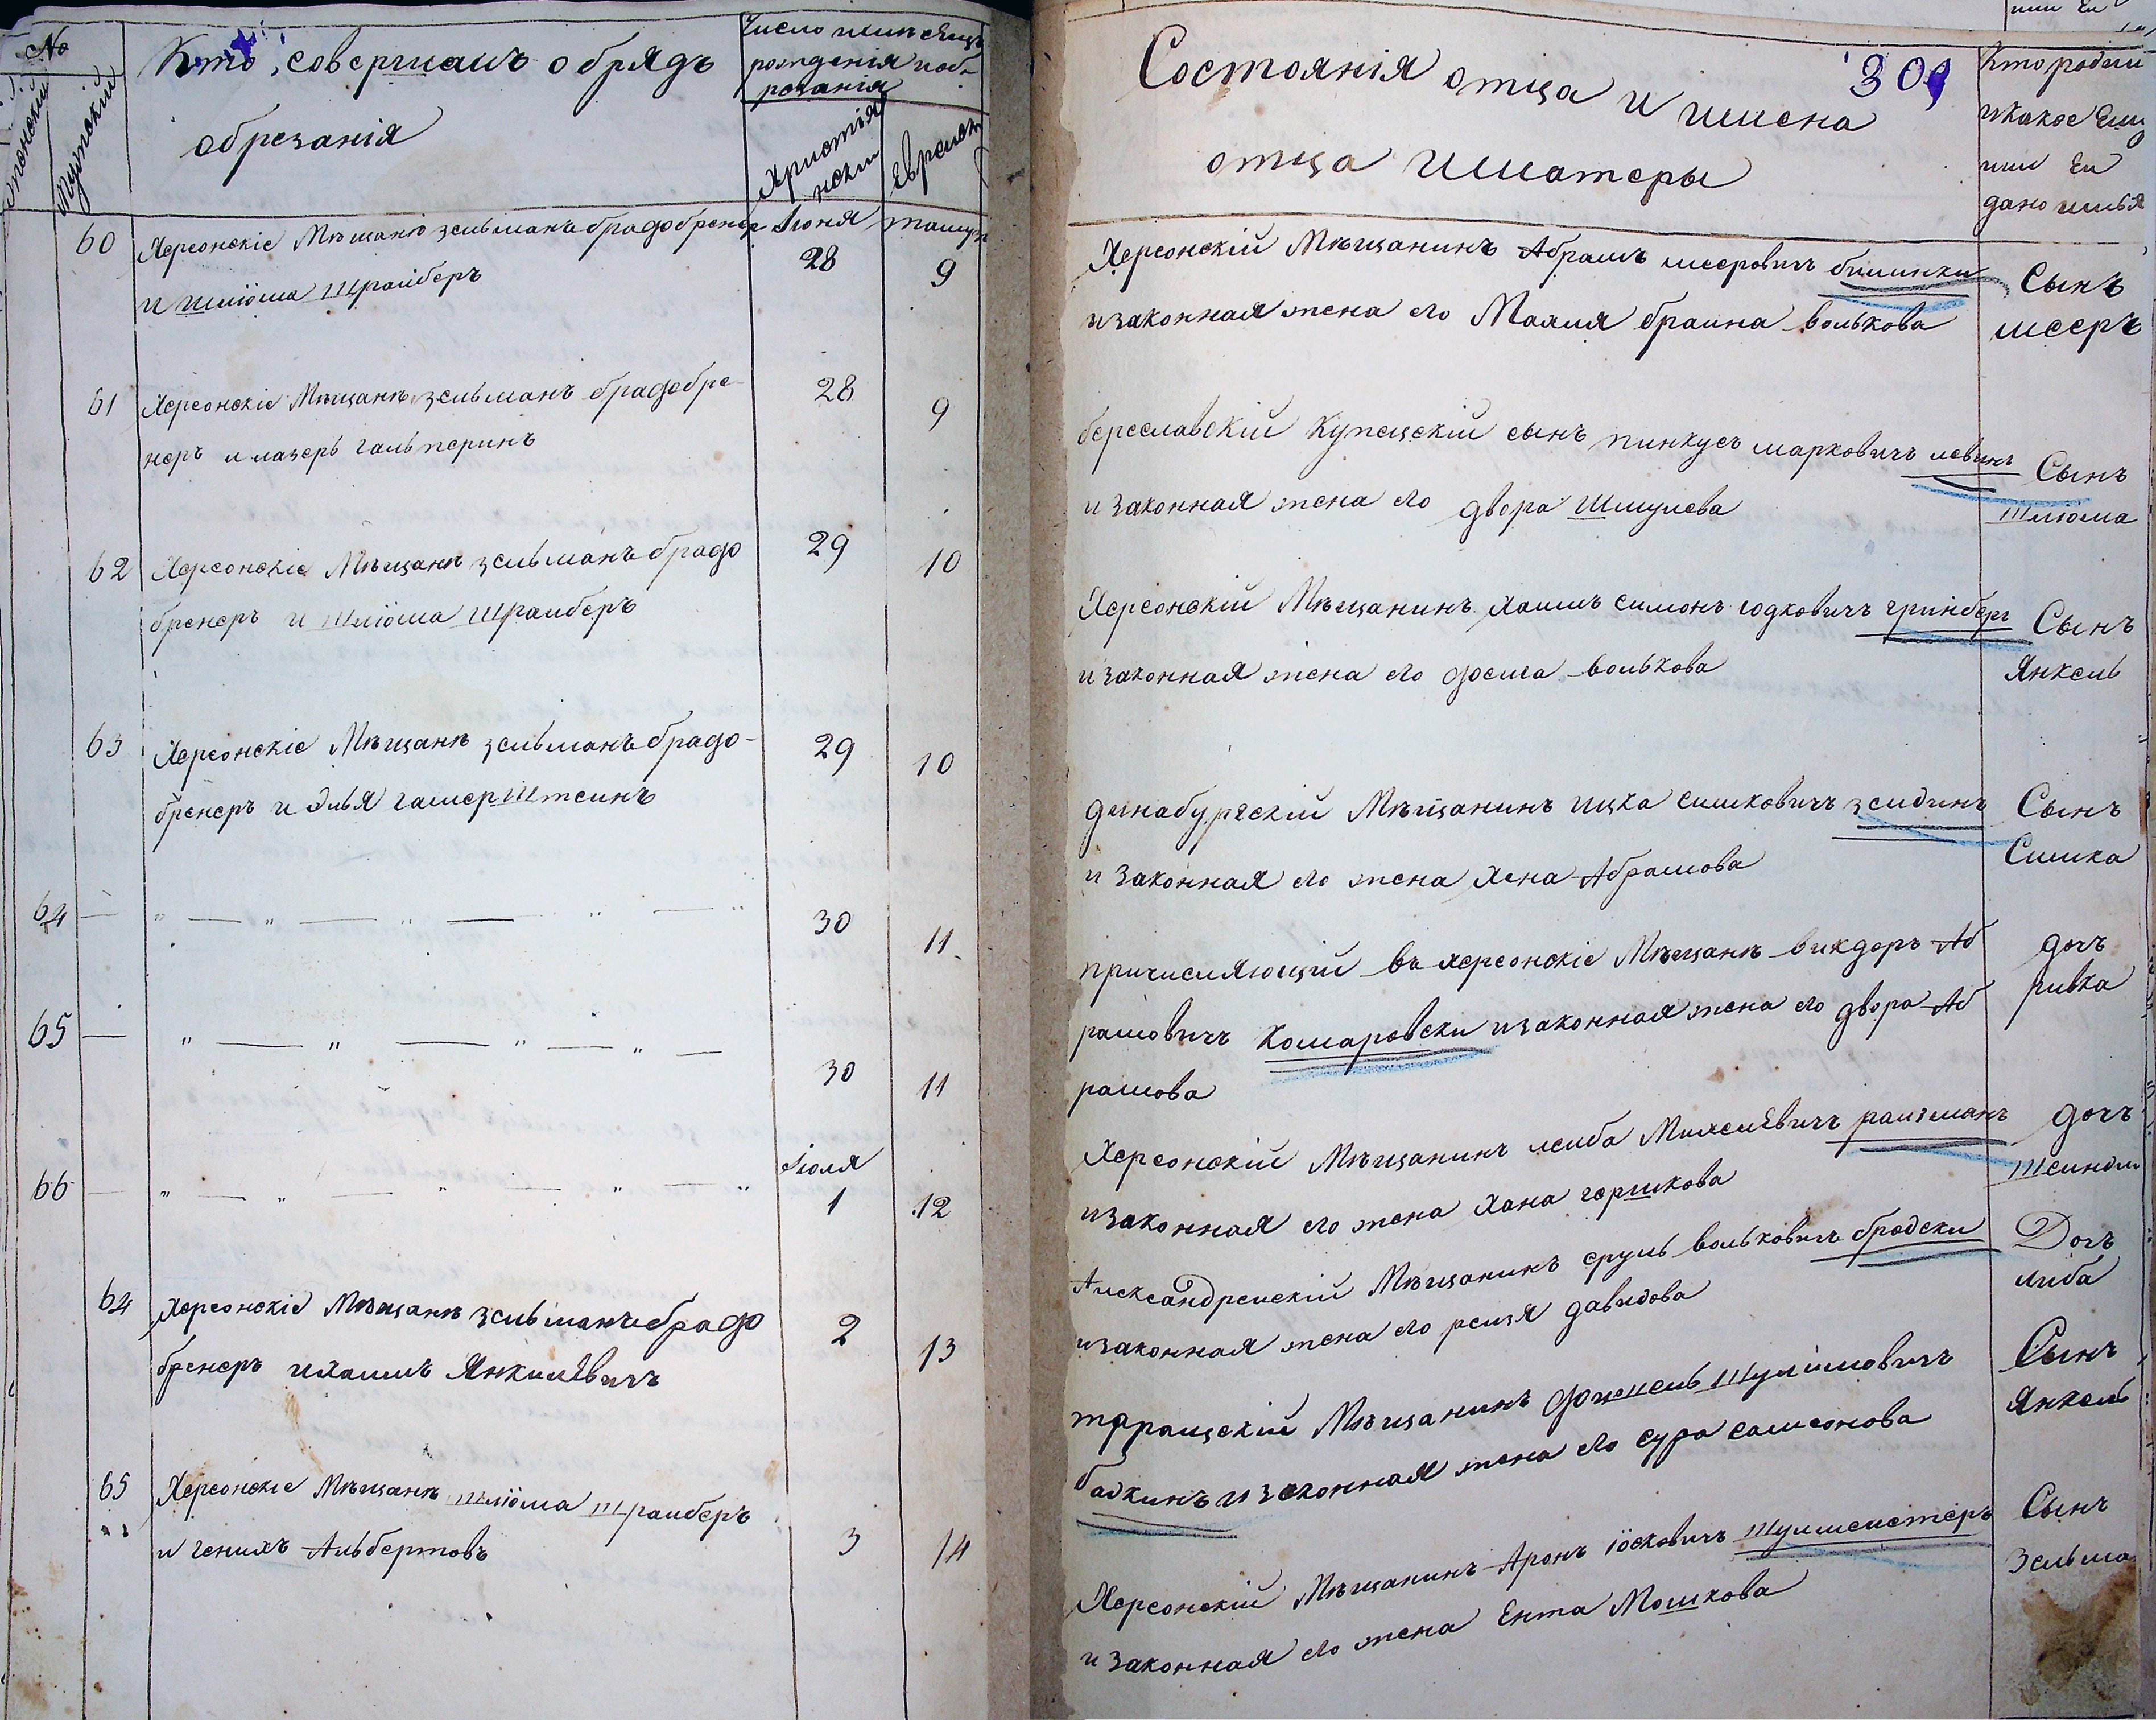 No
Женский
Мужской
Кто совершалъ обрядъ
обрезанія
Число и месяцъ
рожденія и об-
резанія
Христіа
нский
Еврейск
60
Херсонскіе Мѣщанѣ зельманъ брадобренер
и шліома Шрайберъ
Іюня
28
тамуз
9
61
Херсонскіе Мѣщанѣ зельманъ брадобре-
неръ и лазеръ гальперинъ
28
9
62
Херсонскіе Мѣщанѣ зельманъ брадо
бренеръ и Шліома Шрайберъ
29
10
63
Херсонскіе Мѣщанѣ зельманъ брадо-
бренеръ и Элья гамерШтейнъ
29
10
64 — „ — „ — „ — „ — „
30
11
65 — „ — „ — „ — „ —
30
11
66 — „ — „ — „ — „ — „
Іюля
1
12
64
Херсонскіе Мѣщанѣ зельманъ брадо
бренеръ и хаимъ Янкилѣвичъ
2
13
65
Херсонскіе Мѣщанѣ шліома Шрайберъ
и генихъ Альбертовъ
3
14
Состоянія отца и имена
отца и матеры
309
Кто родил
и какое ему
или ей
дано имья
Херсонскій Мѣщанинъ Абрамъ мееровичъ билинки
и законная жена его Малия браина волькова
Сынъ
мееръ
береславскій Купецскій сынъ пинкусъ марковичъ левинъ
и законная жена его двора Шмулева
Сынъ
Шліома
Херсонскій Мѣщанинъ хаимъ симонъ годковичъ гринберг
и законная жена его фейга волькова
Сынъ
Янкель
динабургскій Мѣщанинъ ицка симковичъ зейдинъ
и законная его жена хена Абрамова
Сынъ
Симка
причисляющій въ херсонскіе Мѣщанѣ викдоръ Аб
рамовичъ Комаровски и законная жена его двора Аб
рамова
дочъ
ривка
Херсонскій Мѣщанинъ лейба Михелѣвичъ райзманъ
и законная его жена хана гершкова
дочъ
Шейндил
Александрейскій Мѣщанинъ сруль вольковичъ бродски
и законная жена его рейзя давидова
Дочъ
либа
таращскій Мѣщанинъ фишель Шулимовичъ
баскинъ и законная жена его сура самсонова
Сынъ
Янкель
Херсонскій Мѣщанинъ Аронъ іосковичъ Шулмейстеръ
и законная его жена Ента Мошкова
Сынъ
Зельма